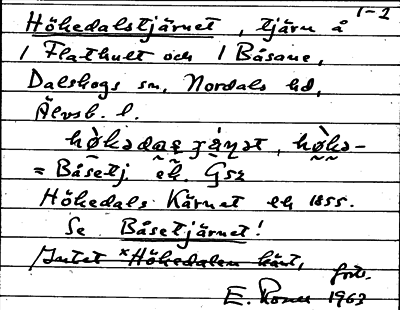 1-2
Hökedalstjärnet, tjärn å
1 Flathult och 1 Båsane,
Dalskogs sn, Nordals hd,
Älvsb. l.
= Båsetj el. Gsz
Hökedals Kärnet ek 1855.
Se Båsetjärnet!
Intet ˣHökedalen känt,
forts.
E. Rosen 1963